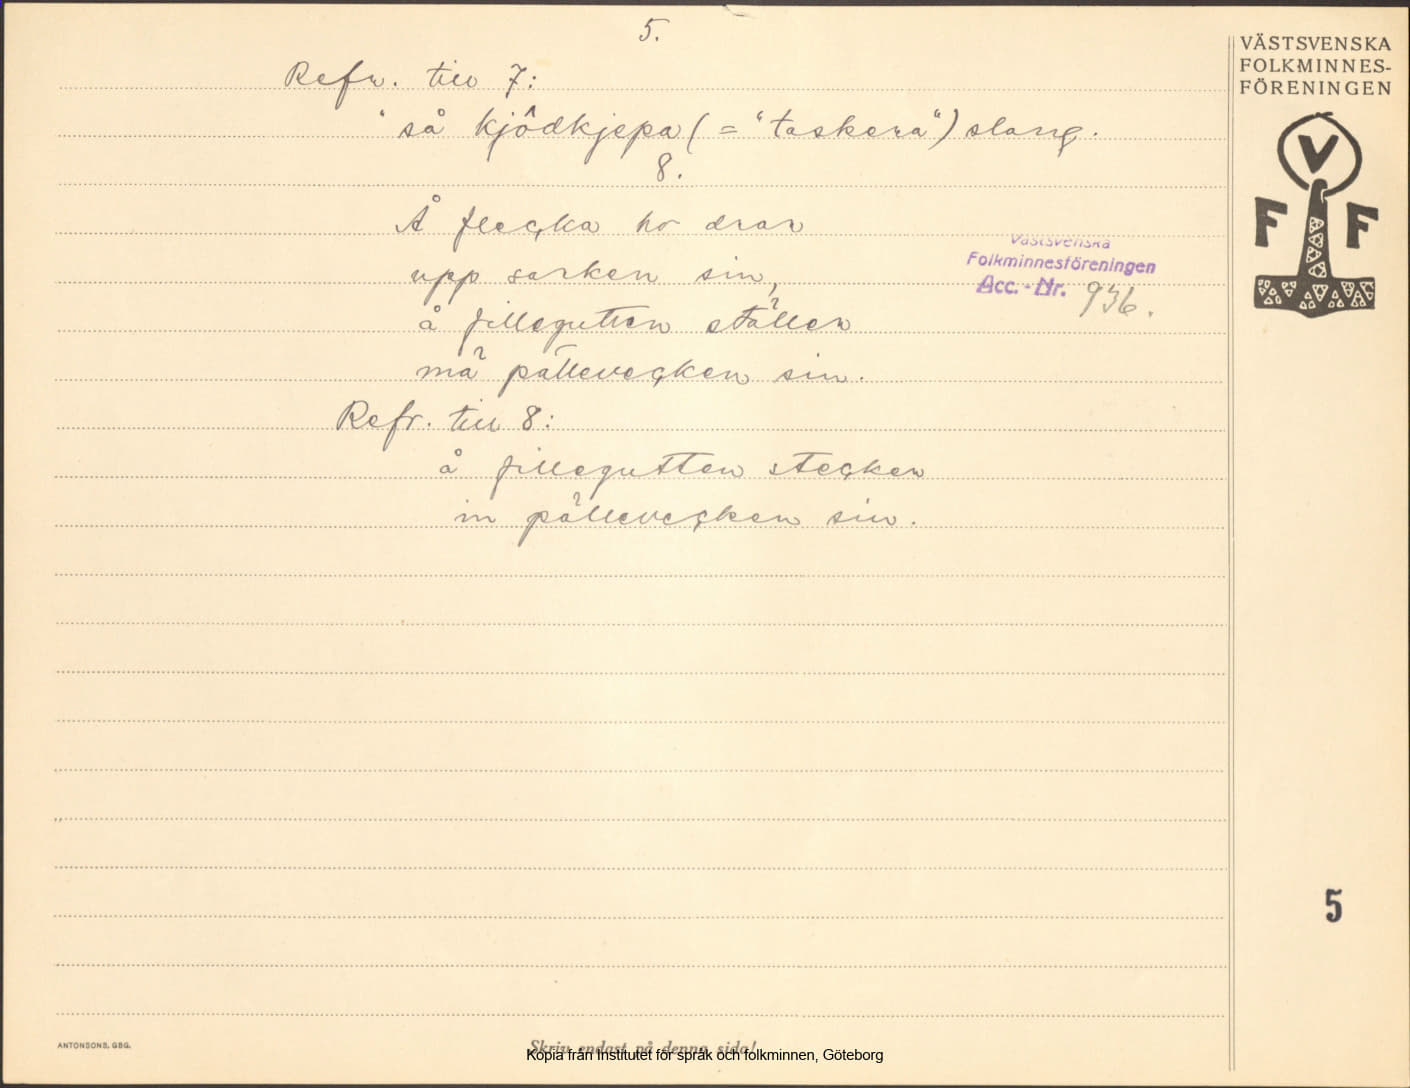 5.
Refr. till 7:
"så kjôdkjepa (= "taskera") slang.
8.
Å flecka ho drar
upp sarken sin,
å fillegutten ställer
mä pällevecken sin.
Refr. till 8:
å fillegutten stecken
in pällevecken sin.
VÄSTSVENSKA
FOLKMINNES-
FÖRENINGEN
V
F F
Västsvenska
Folkminnesföreningen
Acc. - Nr. 936.
5
ANTONSONS, GBG.
Skriv endast på denna sida!
Kopia från Institutet för språk och folkminnen, Göteborg